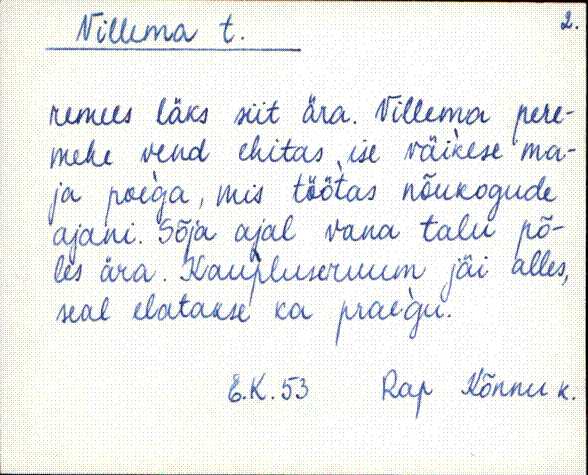 Villema t.
2.
remees läks siit ära. Villema pere-
mehe vend ehitas ise väikese ma-
ja poe'ga, mis töötas nõukogude
ajani. Sõja ajal vana talu põ-
les ära. Kaupluseruum jäi alles,
seal elatakse ka prae'gu.
E.K. 53 Rap Kõnnu k.